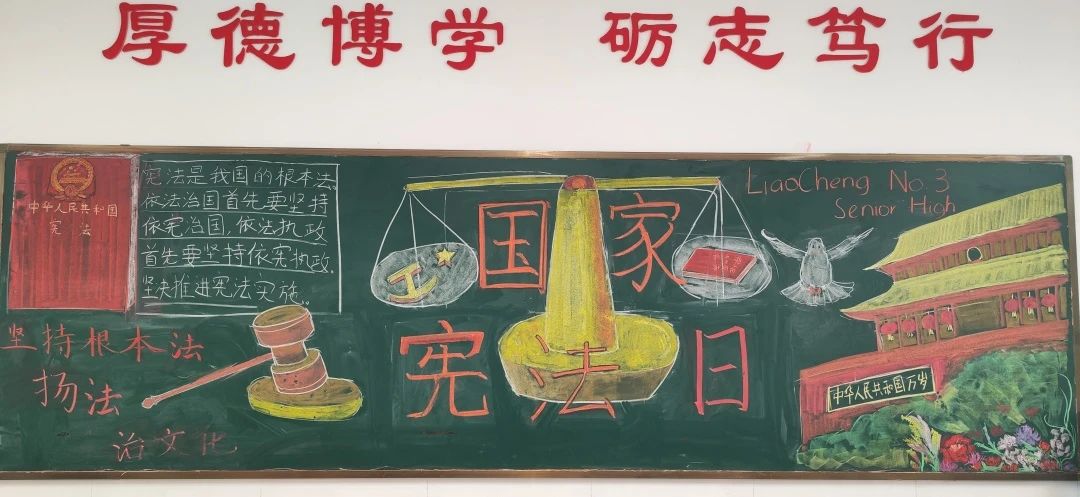 厚德博学 砺志笃行
中华人民共和国
宪法
宪法是我国的根本法。
依法治国首先要坚持
依宪治国，依法执政
首先要坚持依宪执政。
坚决推进宪法实施。
坚持根本法
扬法
治文化
国家
宪法日
LiaoCheng No.3
Senior High
中华人民共和国万岁